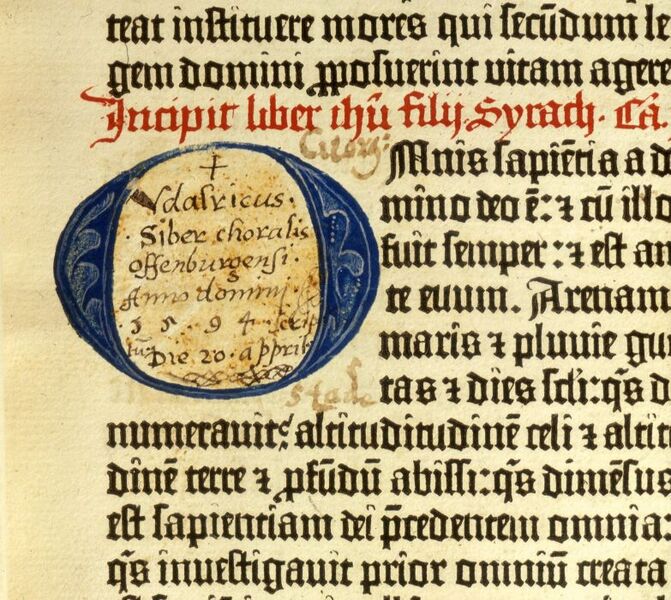 teat instituere mores qui secūdum le
gem domini ꝓposuerint vitam agere
Incipit liber ihū filij Syrach. Ca.
Mnis sapiētia a d
mino deo ē: ⁊ cū illo
fuit semper: ⁊ est an
te evum. Arenam
maris ⁊ pluvie gu
tas ⁊ dies scľi: q̄s d
numeravit? altituditudinē celi ⁊ altit
dinē terre ⁊ ꝓfūdū abissi: q̄s dimēsus
est sapientiam dei p̄cedentem omnia.
q̄s investigavit prior omniū creata
Vdalricus.
Siber choralis
Offenburgensi.
Anno domini.
1 5 9 4 scrip
tū Die 20. appril